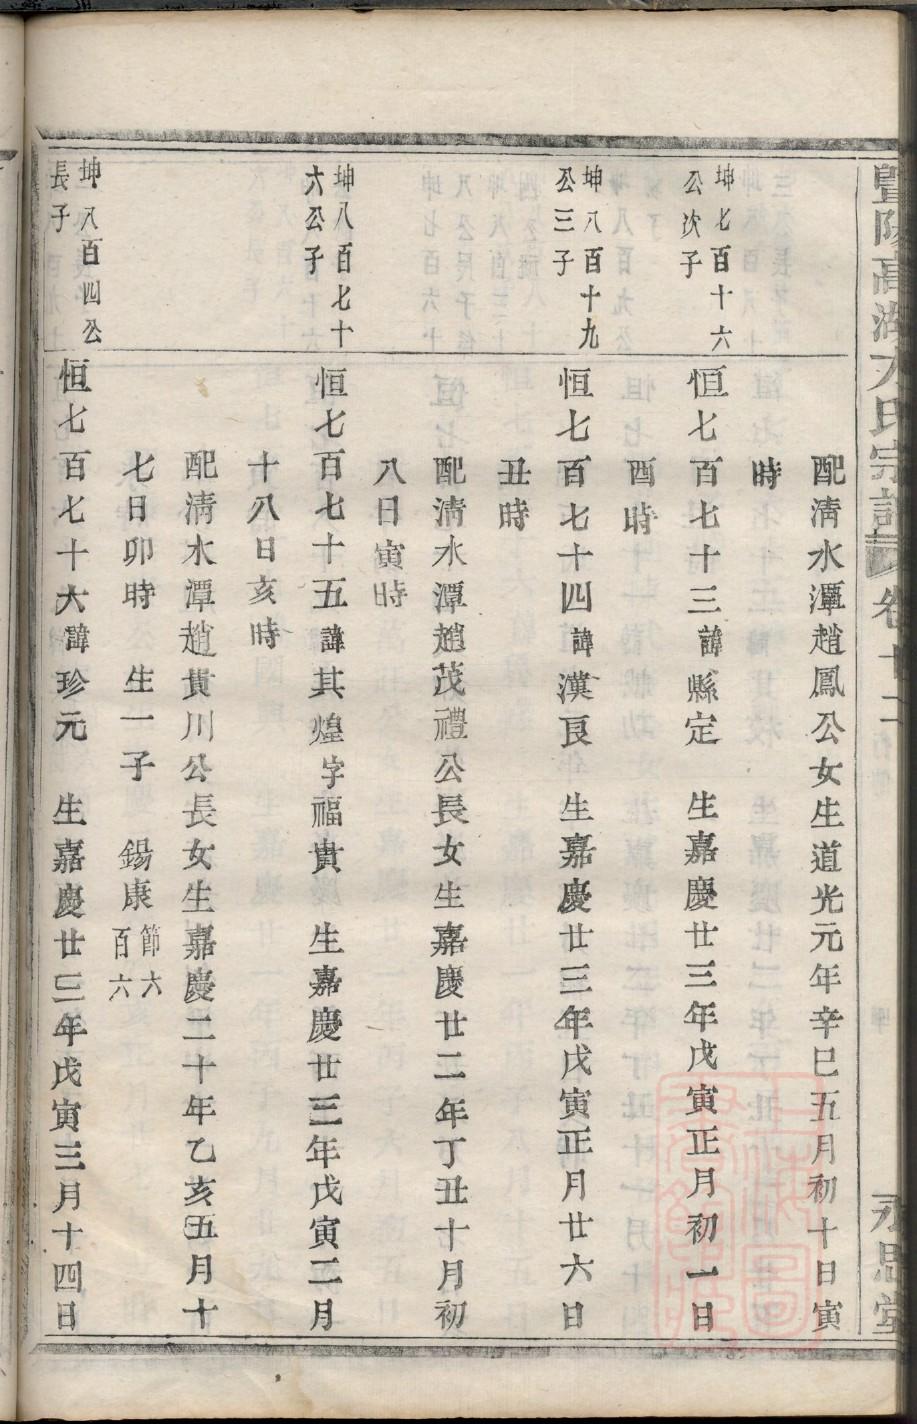 暨陽高湖方氏宗譜 卷廿二 行傳 坤
永思堂
配淸水潭趙鳳公女生道光元年辛巳五月初十日寅
時
坤七百十六
公次子
恒七百七十三諱縣定 生嘉慶廿三年戊寅正月初一日
酉時
坤八百十九
公三子
恒七百七十四諱漢良 生嘉慶廿三年戊寅正月廿六日
丑時
配淸水潭趙茂禮公長女生嘉慶廿二年丁丑十月初
八日寅時
坤八百七十
六公子
恒七百七十五諱其煌字福貴 生嘉慶廿三年戊寅二月
十八日亥時
配淸水潭趙貴川公長女生嘉慶二十年乙亥五月十
七日卯時 生一子 錫康節六
百六
坤八百四公
長子
恒七百七十六諱珍元 生嘉慶廿三年戊寅三月十四日